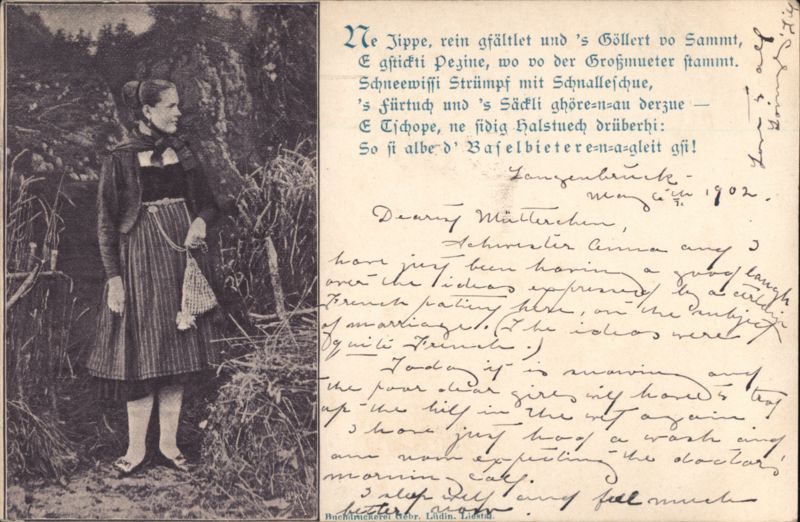 Ne Jippe, rein gfältlet und 's Göllert vo Sammt,
E gstickti Pezine, wo vo der Großmueter stammt.
Schneewissi Strümpf mit Schnalleschue,
's Fürtuch und 's Säckli ghöre=n=au derzue —
E Tschope, ne sidig Halstuech drüberhi:
So si albe d' Baselbietere=n=a=gleit gsi!
Langenbruck -
May 6th 1902.
Dearest Mütterchen,
Schwester Anna and I
have just been having a good laugh
over the ideas expressed by a certain
French patient here, on the subject
of marriage. (The ideas were
quite French.)
Today it is snowing and
the poor dear girls will have to trot
up the hill in the wet again
I have just had a wash and
am now expecting the doctors'
morning call.
I slept well and feel much
better now.
Love to all
Buchdruckerei Gebr. Lüdin, Liestal.